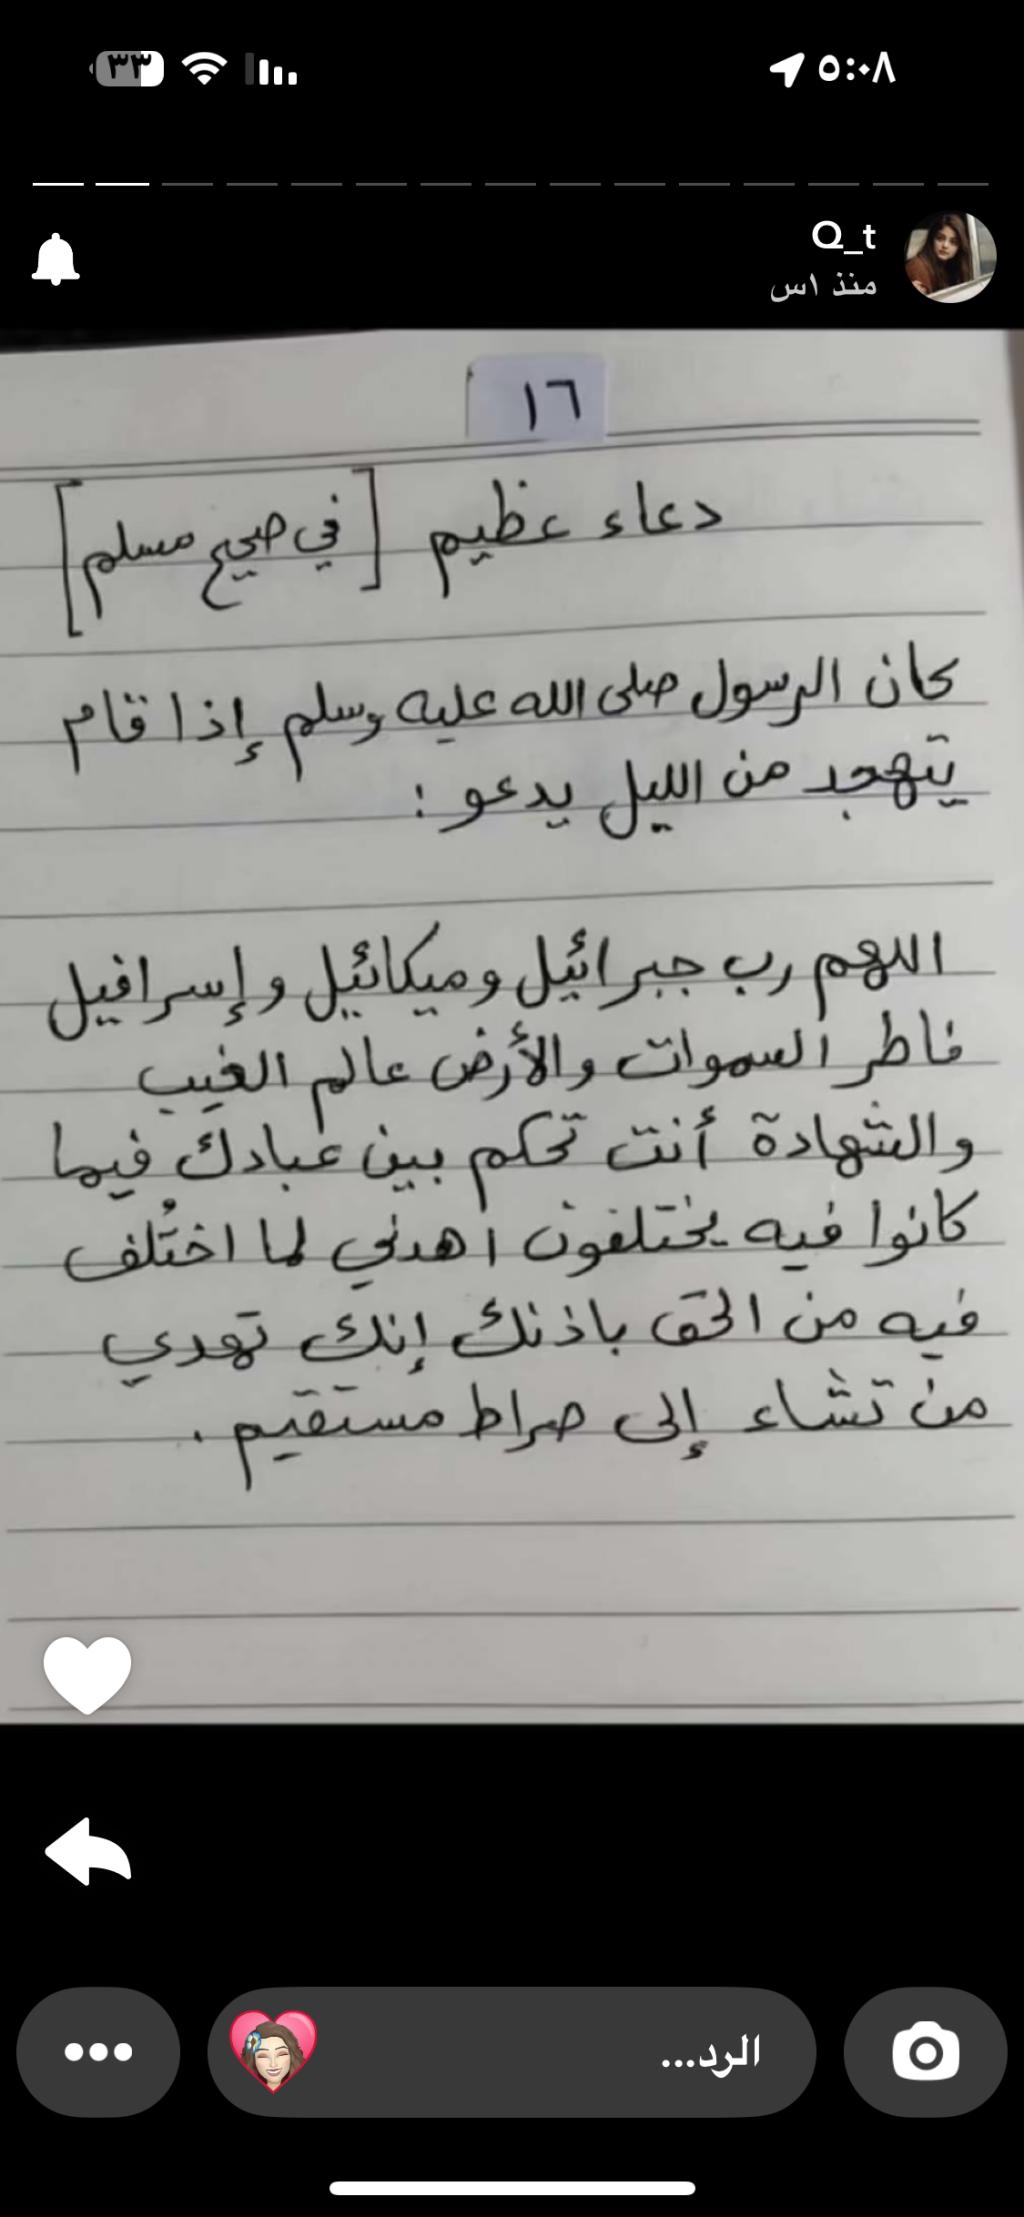 ٥:٠٨
٣٣
Q_t
منذ ١س
١٦
دعاء عظيم [في صحيح مسلم]
كان الرسول صلى الله عليه وسلم إذا قام
يتهجد من الليل يدعو :
اللهم رب جبرائيل وميكائيل وإسرافيل
فاطر السموات والأرض عالم الغيب
والشهادة أنت تحكم بين عبادك فيما
كانوا فيه يختلفون اهدني لما اختُلف
فيه من الحق باذنك إنك تهدي
من تشاء إلى صراط مستقيم .
الرد...